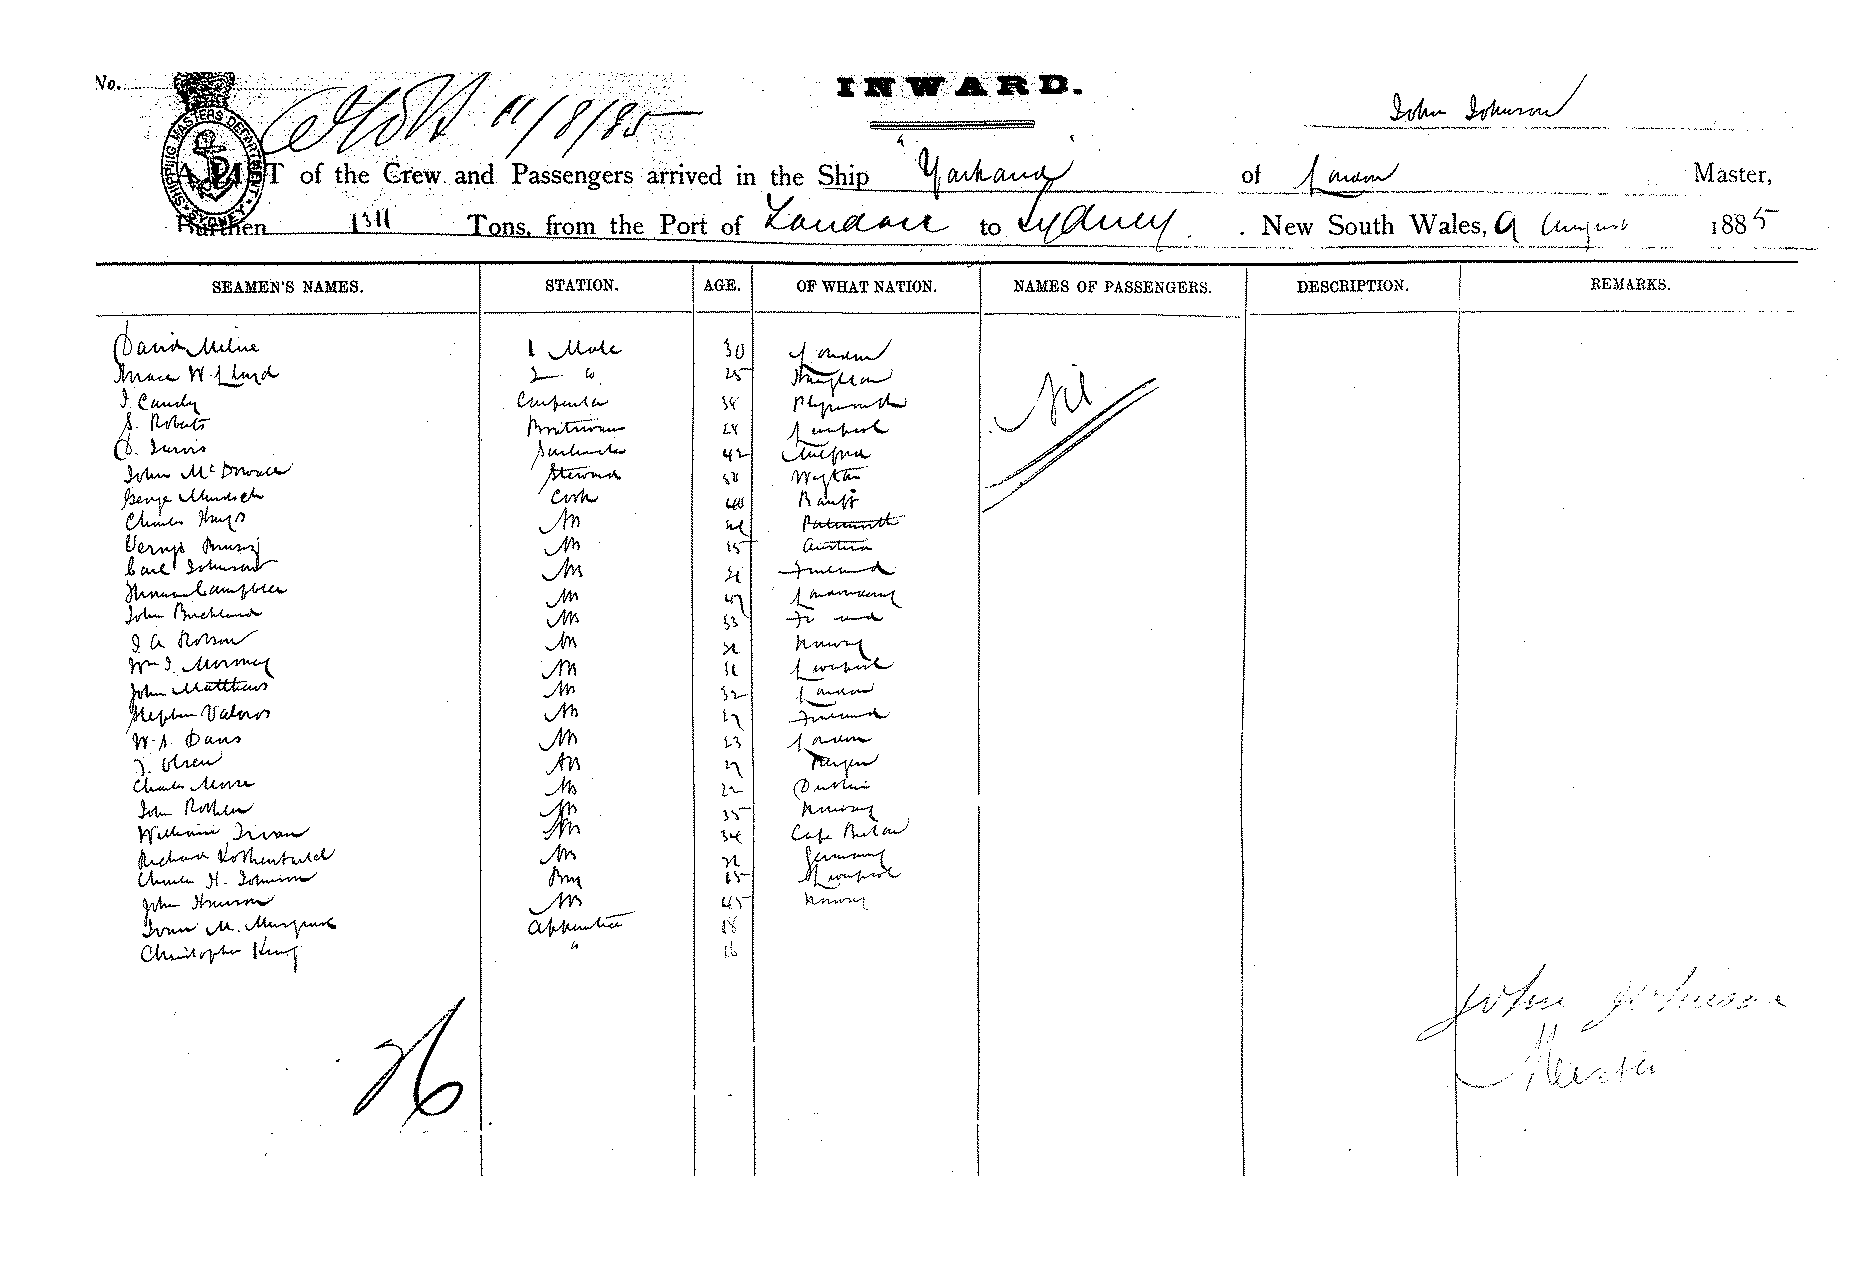 No.
INWARD.
11/8/85
John Johnson
SHIPPING MASTERS DEPARTMENT SYDNEY
A LIST of the Crew and Passengers arrived in the Ship "Yarkand" of London Master,
Burthen 1311 Tons, from the Port of London to Sydney. New South Wales, 9 August 1885
SEAMEN'S NAMES. STATION. AGE. OF WHAT NATION. NAMES OF PASSENGERS. DESCRIPTION. REMARKS.
David Milne 1 Mate 30 London
Horace W. Lloyd 2 " 25
J. Candy Carpenter 38 Plymouth
S. Roberts Boatswain 28 Liverpool
D. Jarvis Sailmaker 42 Milford
John McDowall Steward Wigton
George Murdoch Cook 40 Banff
Charles Hays AB Falmouth
AB 25 Austria
Carl Johnson AB Finland
Thomas Campbell AB 47 Londonderry
John Buckland AB 33
J A Robson AB Norway
Wm J. AB Liverpool
John Matthews AB 32 London
Stephen AB 27 Finland
W. S. Davis AB 23 London
J. Olsen AB 27 Bergen
Charles Moore AB 22 Dublin
John AB 35 Norway
William AB 34 Cape Breton
Richard AB Germany
Charles H. Johnson Boy Liverpool
John AB 45 Norway
M. Musgrave Apprentice 18
Christopher King " 16
Nil
26
John Johnson
Master